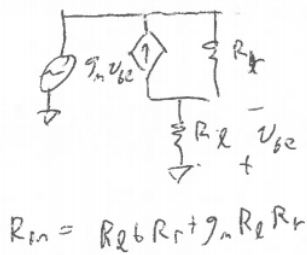 g_m v_be
R_r
-
R_l
v_be
+
R_in = R_l + R_r + g_m R_l R_r